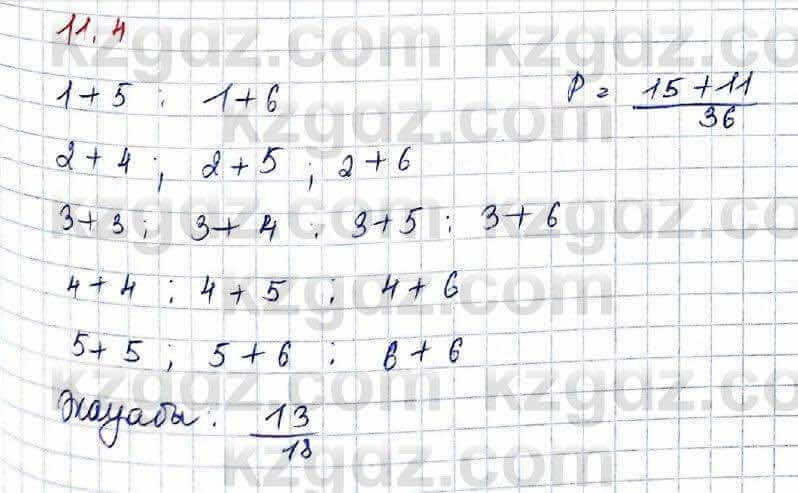 11.4
1+5 : 1+6 P = 15+11/36
2+4 ; 2+5 ; 2+6
3+3 ; 3+4 : 3+5 : 3+6
4+4 : 4+5 : 4+6
5+5 ; 5+6 : 6+6
Жауабы: 13/18
kzgdz.com
kzgdz.com
kzgdz.com
kzgdz.com
kzgdz.com
kzgdz.com
kzgdz.com